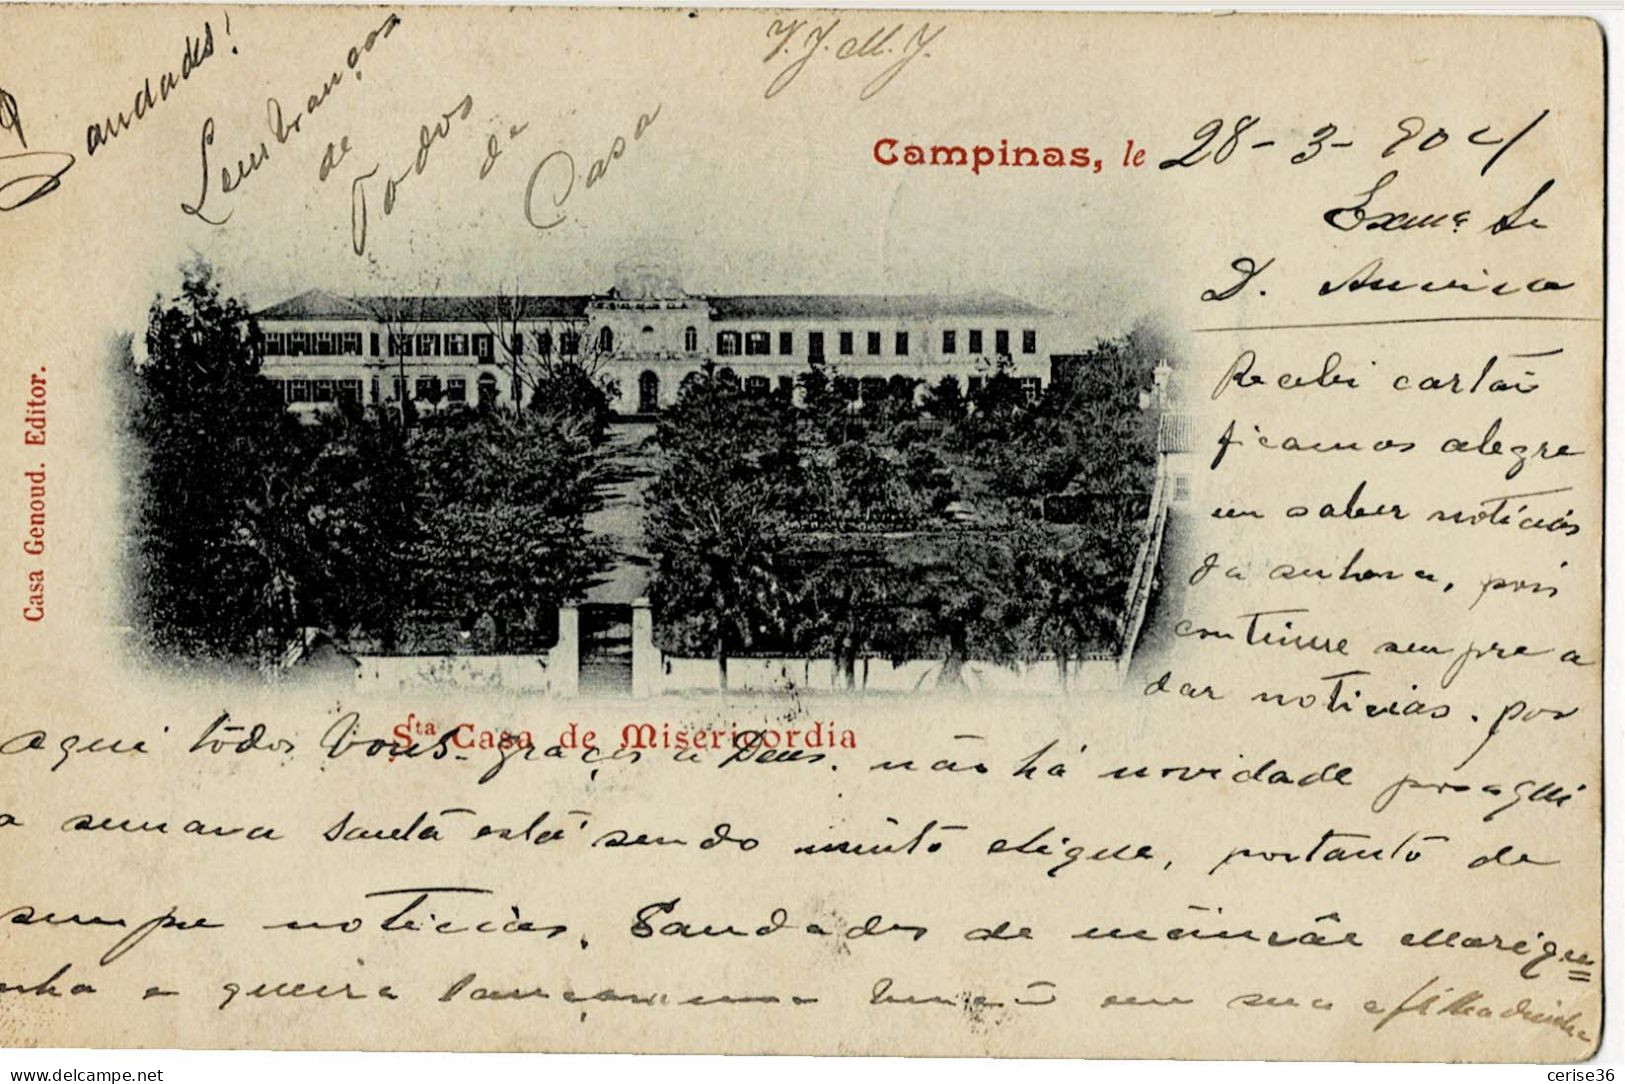 Saudades!
Lembranças
de
Todos
de
Casa
V. J. M. J.
Campinas, le 28-3-904
Exmª Sr
D.
Recebi cartão
ficamos alegre
em saber noticias
da senhora, pois
continue sempre a
dar noticias. por
Casa Genoud. Editor.
Sta Casa de Misericordia
aqui tôdos bons graças a Deus. não há novidade por aqui
a semana Santa está sendo muito chique, portanto de
sempre noticias. Saudades de mãi Mariqui
nha e queira lançar uma benção em sua afilhadinha
cerise36
www.delcampe.net